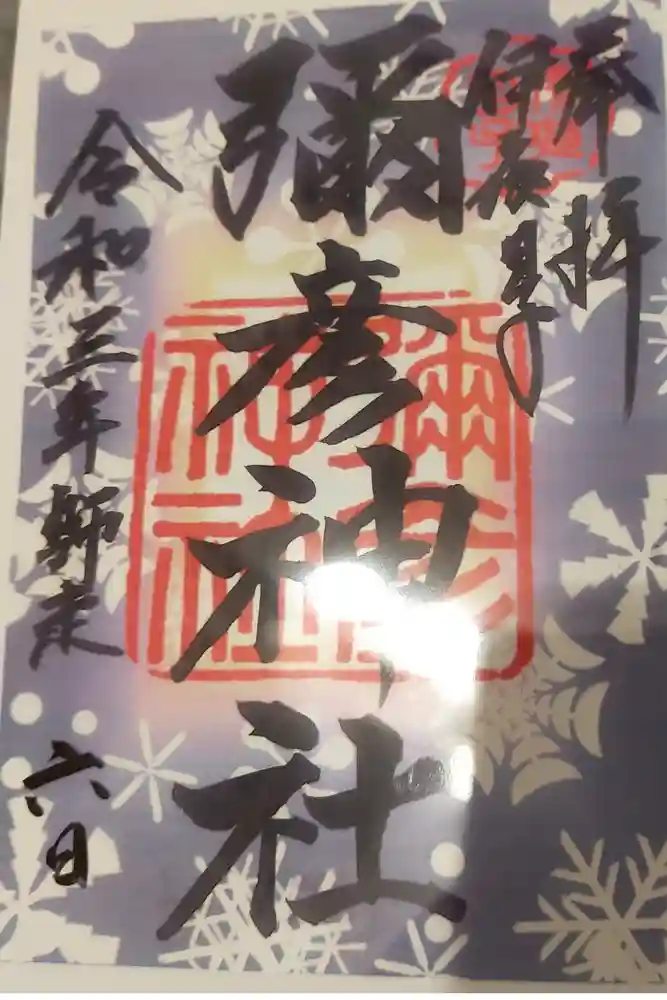 奉拝
伊夜日子
彌彦神社
彌彦
神社
令和三年師走
六日